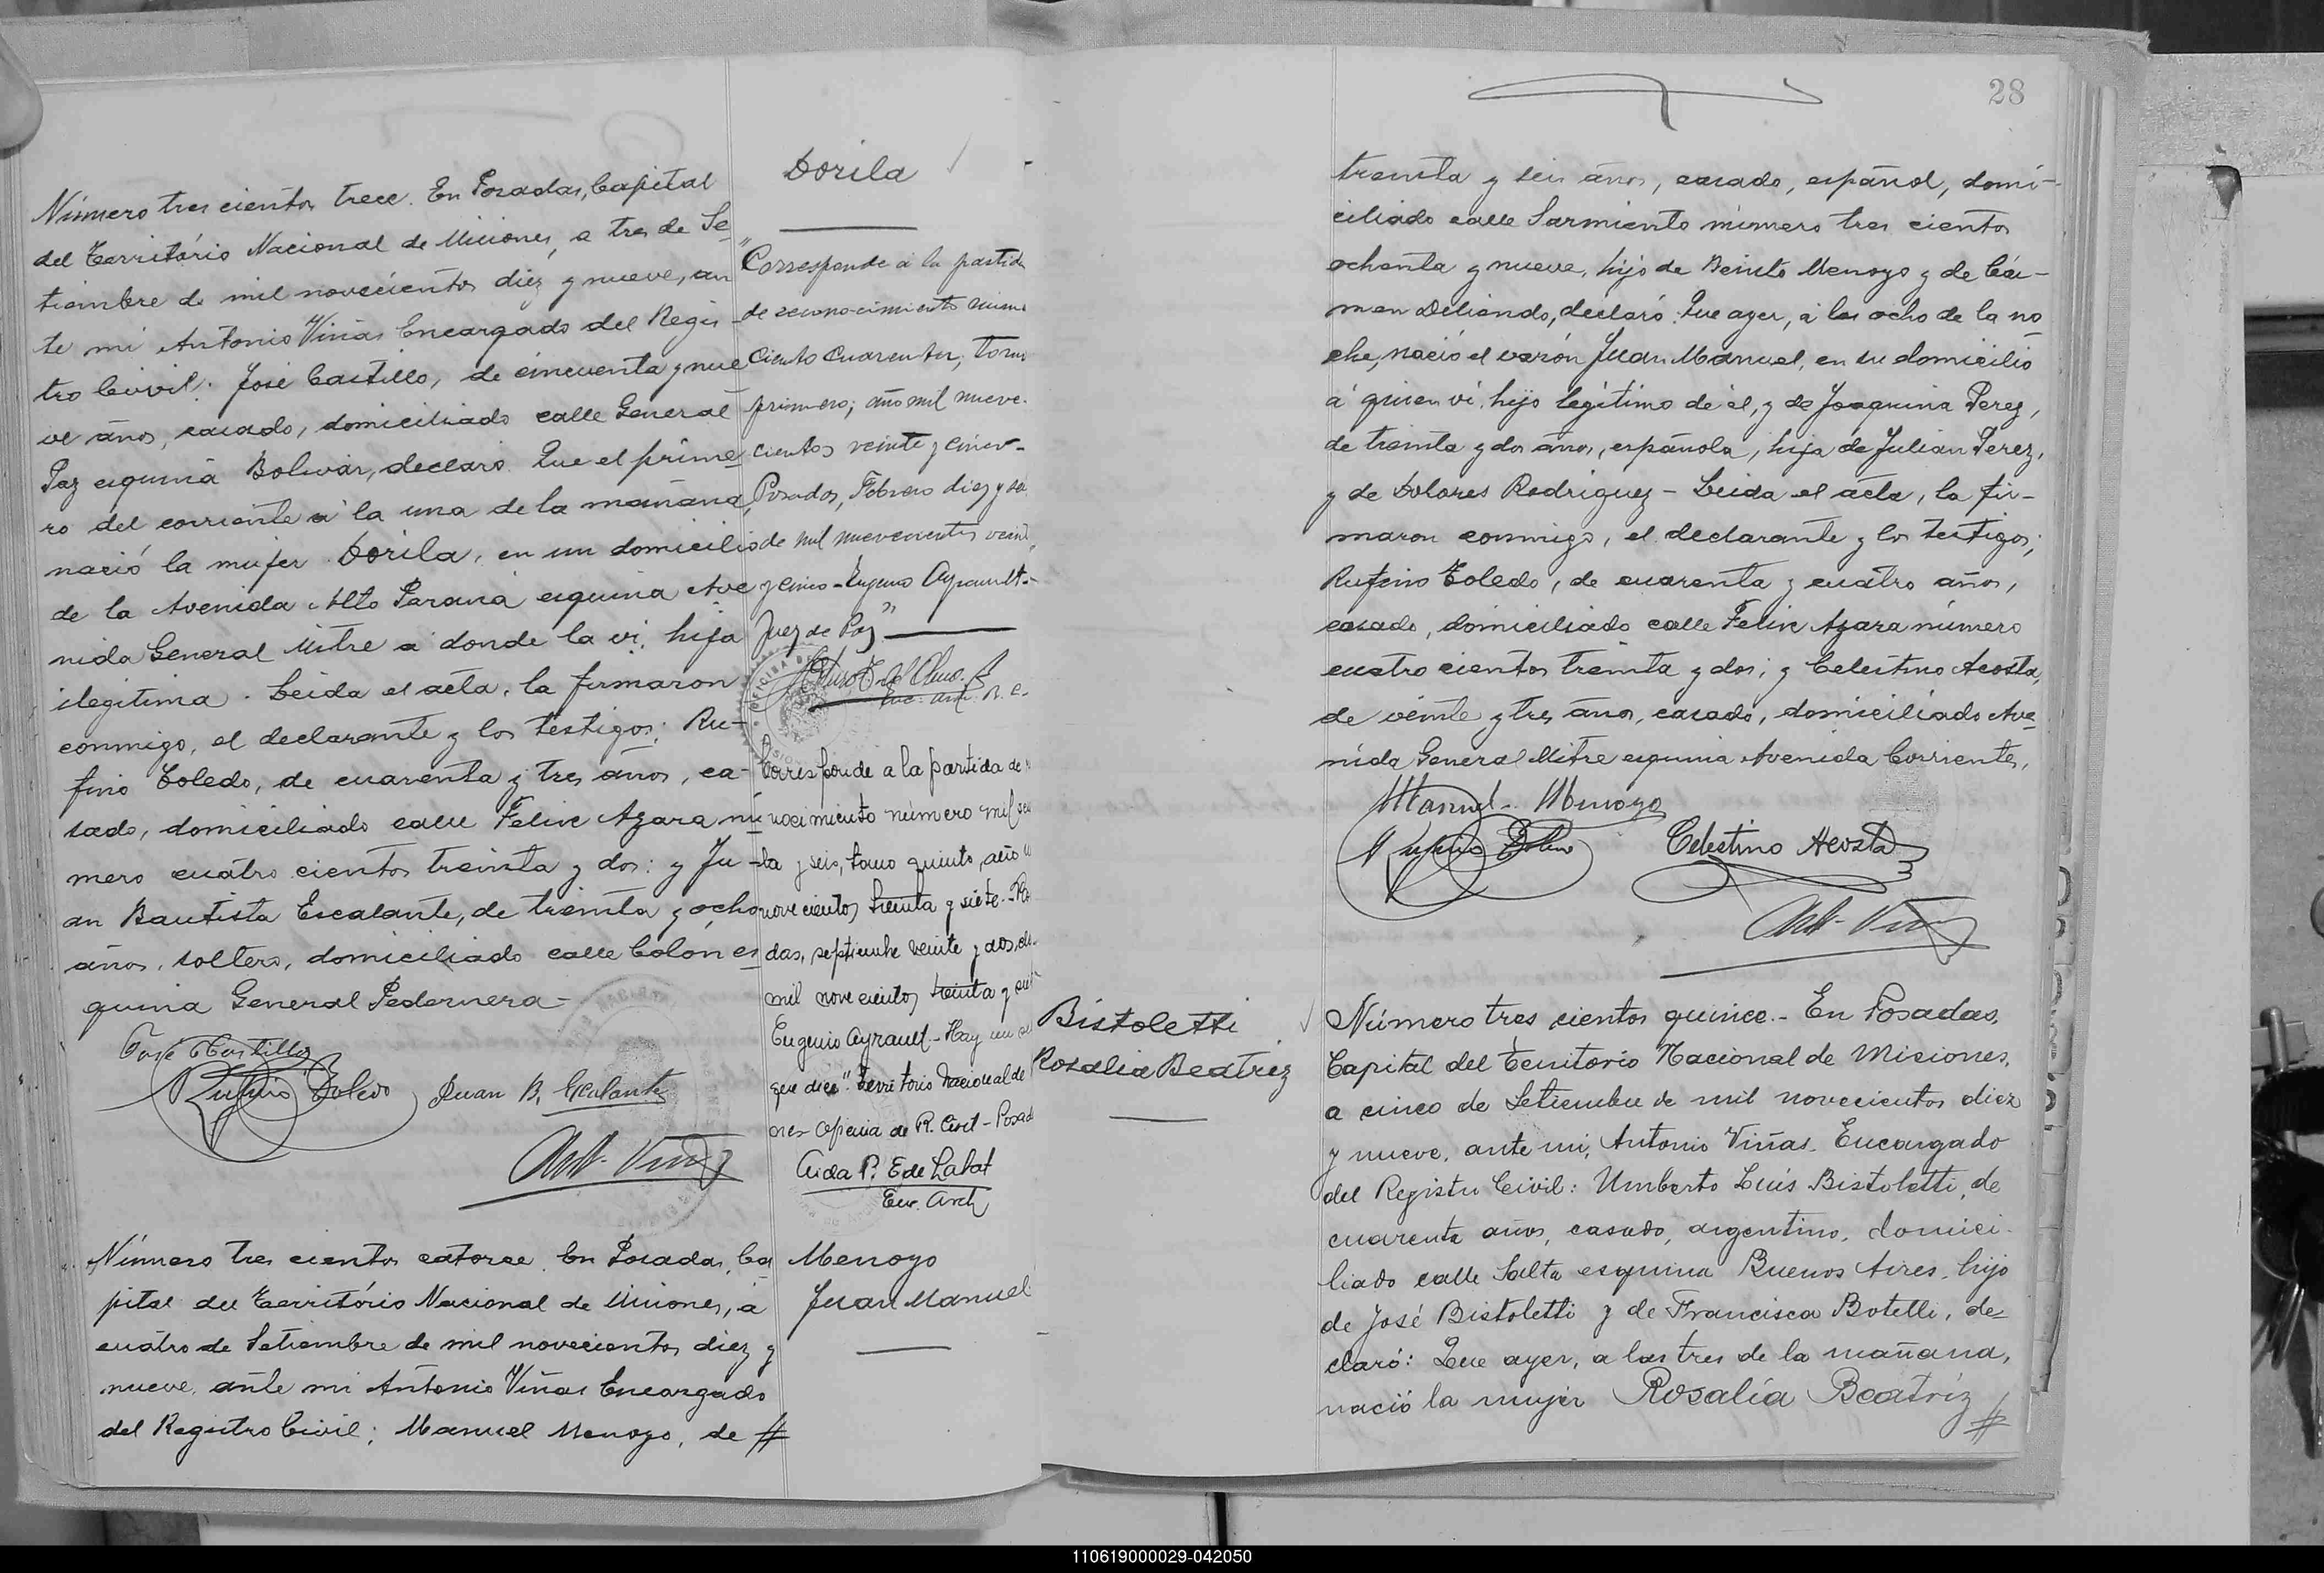 Número tres cientos trece. En Posadas, Capital
del Território Nacional de Misiones, a tres de Se_
tiembre de mil novecientos diez y nueve, an
te mi Antonio Viñas Encargado del Regis-
tro Civil: José Castillo, de cincuenta y nue
ve años, casado, domiciliado calle General
Paz esquina Bolivar, declaró: Que el prime_
ro del corriente a la una de la mañana,
nació la mujer Dorila, en un domicilio
de la Avenida Alto Paraná esquina Ave
nida General Mitre a donde la vi, hija
ilegitima. Leida el acta, la firmaron
conmigo, el declarante y los testigos; Ru-
fino Toledo, de cuarenta y tres años, ca-
sado, domiciliado calle Felix Azara nú
mero cuatro cientos treinta y dos: y Ju-
an Bautista Escalante, de treinta y ocho
años, soltero, domiciliado calle Colón es_
quina General Pedernera-
José Castillo
Rufino Toledo Juan B. Escalante
Ant. Viñas
Dorila
"Corresponde a la partida
de reconocimiento
ciento cuarenta, tomo
primero; año mil nueve-
cientos veinte y cinco-
Posadas, Febrero diez y
de mil novecientos
y cinco - Eugenio Ayrault-
Juez de Paz"
Enc. Arch. R. C.
Corresponde a la partida de
nocimiento número mil
ta y seis, tomo quinto, año
novecientos treinta y siete.-
das, septiembre veinte y dos, de
mil novecientos treinta y
Eugenio Ayrault - Hay un
que dice "Territorio Nacional de
ones Oficina de R. Civil - Posad
Aida P. E de Labat
Enc. Arch
Número tres cientos catorce. En Posadas, Ca
pital del Território Nacional de Misiones, á
cuatro de Setiembre de mil novecientos diez y
nueve, ante mi Antonio Viñas Encargado
del Registro Civil; Manuel Menoyo, de #
Menoyo
Juan Manuel
28
treinta y seis años, casado, español, domi-
ciliado calle Sarmiento número tres cientos
ochenta y nueve, hijo de Benito Menoyo y de Cár-
men Deliendo, declaró: Que ayer, á las ocho de la no
che, nació el varón Juan Manuel, en su domicilio
á quien vi, hijo legitimo de él, y de Joaquina Perez,
de treinta y dos años, española, hija de Julián Perez,
y de Dolores Rodriguez - Leida el acta, la fir-
maron conmigo, el declarante y los testigos;
Rufino Toledo, de cuarenta y cuatro años,
casado, domiciliado calle Felix Azara número
cuatro cientos treinta y dos; y Celestino Acosta,
de veinte y tres años, casado, domiciliado Ave_
nida General Mitre esquina Avenida Corrientes,
Manuel Menoyo
Rufino Toledo Celestino Acosta
Ant. Viñas
Bistoletti
Rosalia Beatriz
Número tres cientos quince.- En Posadas,
Capital del Territorio Nacional de Misiones,
a cinco de Setiembre de mil novecientos diez
y nueve, ante mi, Antonio Viñas, Encargado
del Registro Civil: Umberto Luis Bistoletti, de
cuarenta años, casado, argentino, domici-
liado calle Salta esquina Buenos Aires, hijo
de José Bistoletti y de Francisca Botelli, de_
claró: Que ayer, a las tres de la mañana,
nació la mujer Rosalía Beatríz #
110619000029-042050